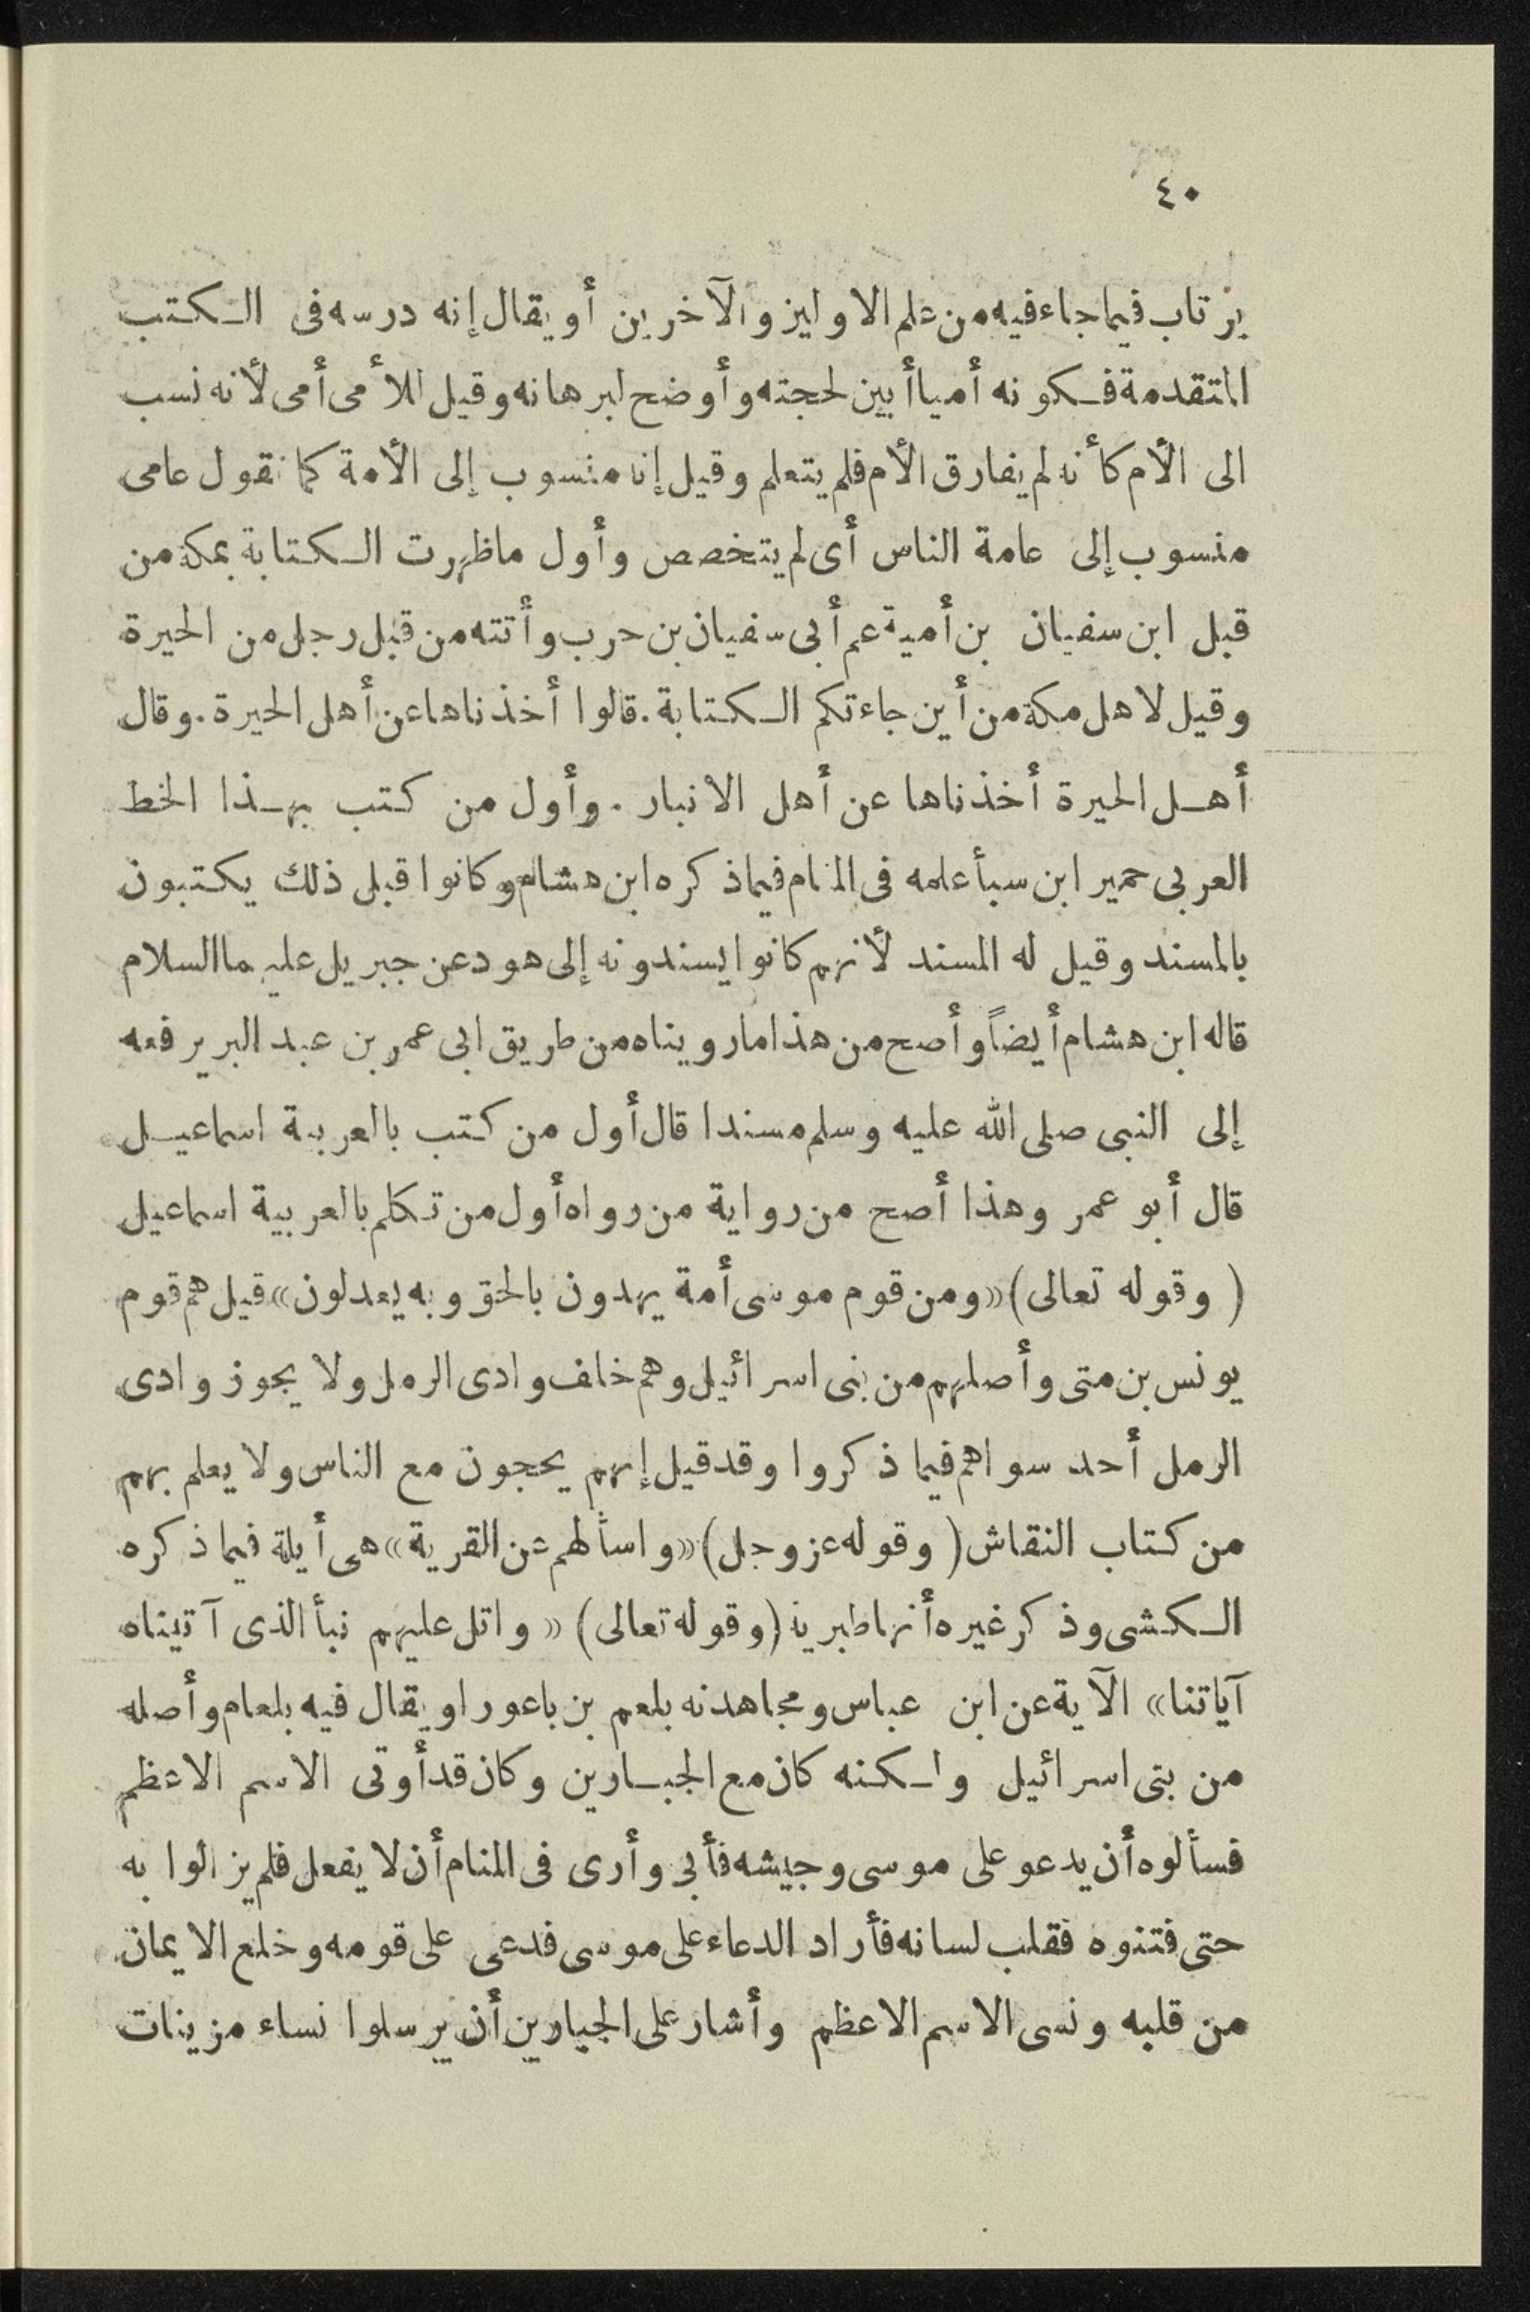 ٤٠
يرتاب فيما جاء فيه من علم الاولين والآخرين أو يقال إنه درسه فى الكتب
المتقدمة فكونه أميا أبين لحجته وأوضح لبرهانه وقيل للأمى أمى لأنه نسب
الى الأم كأنه لم يفارق الأم فلم يتعلم وقيل إنه منسوب إلى الأمة كما تقول عامى
منسوب إلى عامة الناس أى لم يتخصص وأول ما ظهرت الكتابة بمكة من
قبل ابن سفيان بن أمية عم أبى سفيان بن حرب وأتته من قبل رجل من الحيرة
وقيل لاهل مكة من أين جاءتكم الكتابة. قالوا أخذناها عن أهل الحيرة. وقال
أهل الحيرة أخذناها عن أهل الانبار. وأول من كتب بهذا الخط
العربى حمير ابن سبأ علمه فى المنام فيما ذكره ابن هشام وكانوا قبل ذلك يكتبون
بالمسند وقيل له المسند لأنهم كانوا يسندونه إلى هود عن جبريل عليهما السلام
قاله ابن هشام أيضاً وأصح من هذا ما رويناه من طريق ابى عمر بن عبد البر يرفعه
إلى النبى صلى الله عليه وسلم مسندا قال أول من كتب بالعربية اسماعيل
قال أبو عمر وهذا أصح من رواية من رواه أول من تكلم بالعربية اسماعيل
( وقوله تعالى) «ومن قوم موسى أمة يهدون بالحق وبه يعدلون» قيل هم قوم
يونس بن متى وأصلهم من بنى اسرائيل وهم خلف وادى الرمل ولا يجوز وادى
الرمل أحد سواهم فيما ذكروا وقد قيل إنهم يحجون مع الناس ولا يعلم بهم
من كتاب النقاش ( وقوله عز وجل) «واسألهم عن القرية» هى أيلة فيما ذكره
الكشى وذكر غيره أنها طبرية (وقوله تعالى) «واتل عليهم نبأ الذى آتيناه
آياتنا» الآية عن ابن عباس ومجاهد نه بلعم بن باعورا ويقال فيه بلعام وأصله
من بنى اسرائيل ولكنه كان مع الجبارين وكان قد أوتى الاسم الاعظم
فسألوه أن يدعو على موسى وجيشه فأبى وأرى فى المنام أن لا يفعل فلم يزالوا به
حتى فتنوه فقلب لسانه فأراد الدعاء على موسى فدعى على قومه وخلع الايمان
من قلبه ونسى الاسم الاعظم وأشار على الجبارين أن يرسلوا نساء مزينات